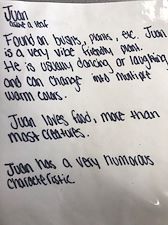 Juan
Found on bushes, plants, etc. Juan
is a very nice friendly plant.
He is usually dancing or laughing
and can change into multiple
warm colors.
Juan loves food, more than
most creatures.
Juan has a very humorous
characteristic.